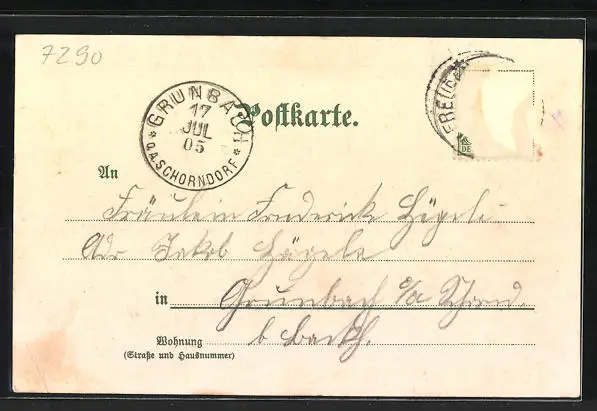 7290
GRUNBACH
17
JUL
05
O.A. SCHORNDORF
Postkarte.
An
Fräulein Frederick Hägele
Adr Jakob Hägele
in Grunbach o/a Schornd.
Wohnung
(Straße und Hausnummer)